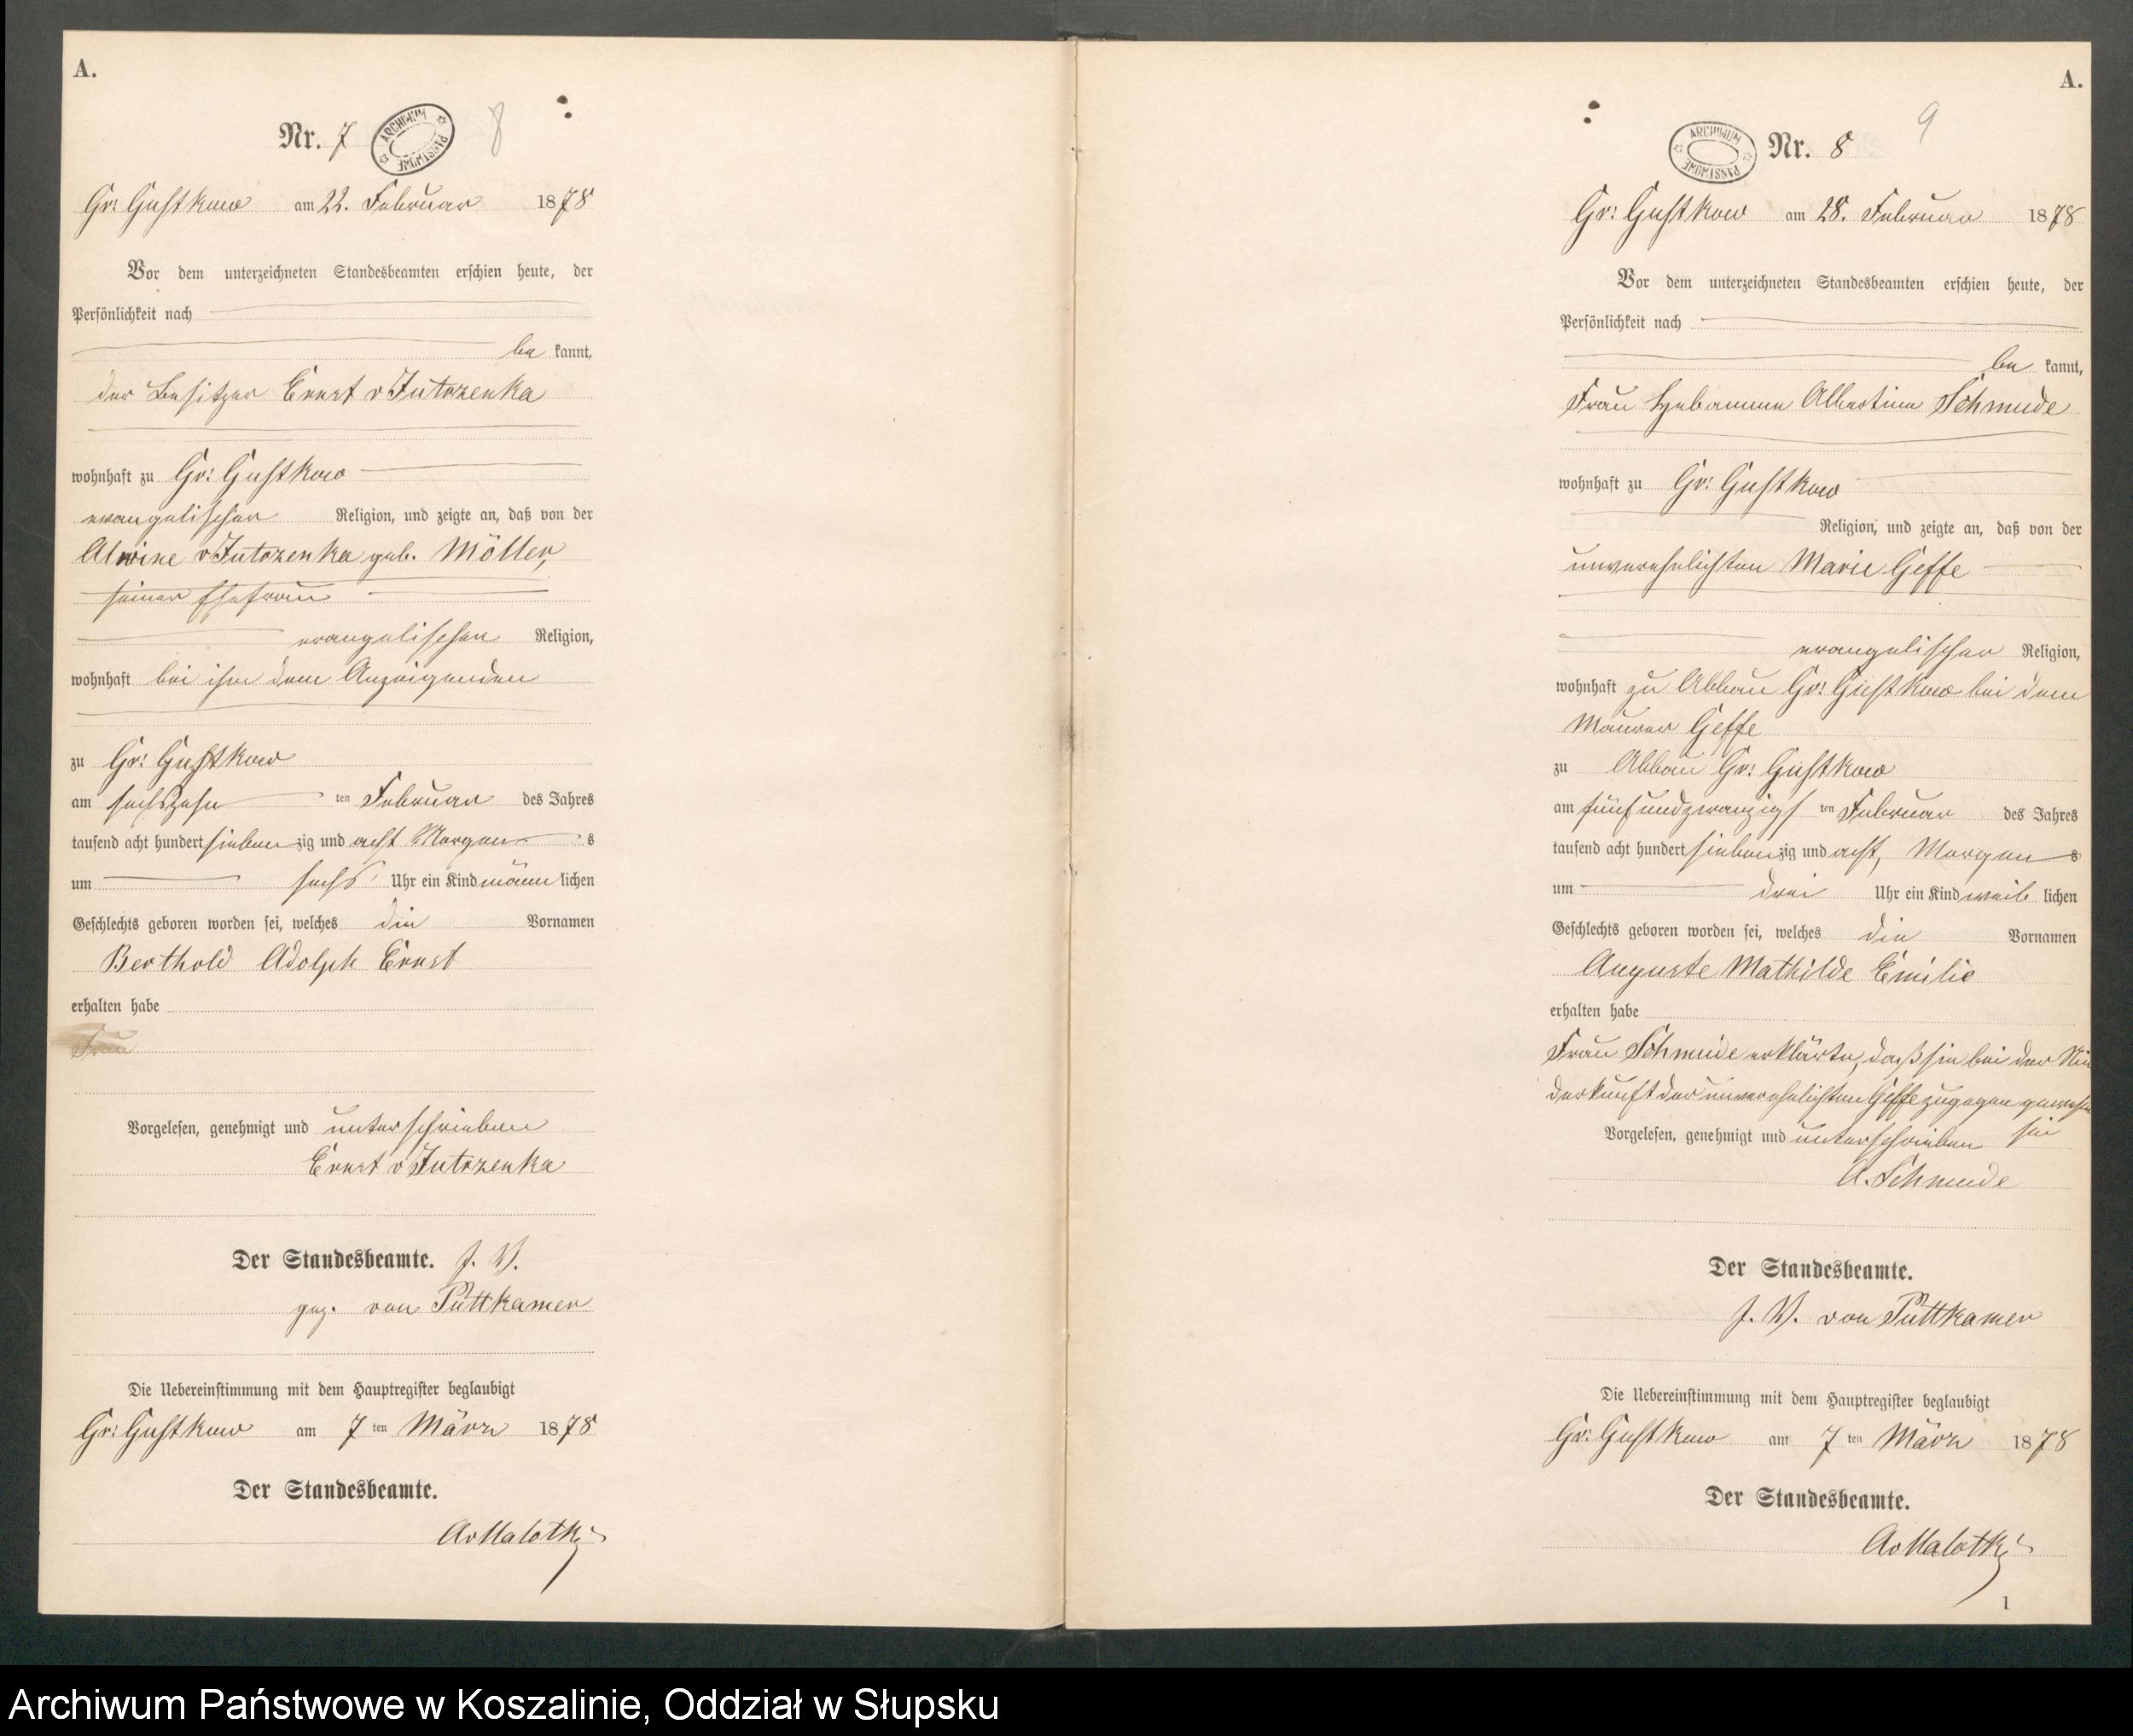 A.
Nr. 7
ARCHIWUM PAŃSTWOWE
8
Gr: Gustkow am 22. Februar 1878
Vor dem unterzeichneten Standesbeamten erschien heute, der
Persönlichkeit nach
be kannt,
der Besitzer Ernst v Jutrzenka
wohnhaft zu Gr: Gustkow
evangelischer Religion, und zeigte an, daß von der
Alwine v Jutrzenka geb. Möller,
seiner Ehefrau
evangelischen Religion,
wohnhaft bei ihm dem Anzeigenden
zu Gr: Gustkow
am sechszehn ten Februar des Jahres
tausend acht hundert sieben zig und acht Morgen s
um sechs Uhr ein Kind männ lichen
Geschlechts geboren worden sei, welches die Vornamen
Berthold Adolph Ernst
erhalten habe
Frau
Vorgelesen, genehmigt und unterschrieben
Ernst v Jutrzenka
Der Standesbeamte. J. V.
gez. von Puttkamer
Die Uebereinstimmung mit dem Hauptregister beglaubigt
Gr: Gustkow am 7 ten März 1878
Der Standesbeamte.
AvMalotki
A.
9
ARCHIWUM PAŃSTWOWE
Nr. 8
Gr: Gustkow am 28. Februar 1878
Vor dem unterzeichneten Standesbeamten erschien heute, der
Persönlichkeit nach
be kannt,
Frau Hebamme Albertine Schmude
wohnhaft zu Gr: Gustkow
Religion, und zeigte an, daß von der
unverehelichten Marie Geffe
evangelischer Religion,
wohnhaft zu Abbau Gr: Gustkow bei dem
Maurer Geffe
zu Abbau Gr: Gustkow
am fünfundzwanzigs ten Februar des Jahres
tausend acht hundert sieben zig und acht, Morgen s
um drei Uhr ein Kind weib lichen
Geschlechts geboren worden sei, welches die Vornamen
Auguste Mathilde Emilie
erhalten habe
Frau Schmude erklärte, daß sie bei der Nie
derkunft der unverehelichten Geffe zugegen gewesen
Vorgelesen, genehmigt und unterschrieben sei
A. Schmude
Der Standesbeamte.
J. V. von Puttkamer
Die Uebereinstimmung mit dem Hauptregister beglaubigt
Gr: Gustkow am 7 ten März 1878
Der Standesbeamte.
AvMalotki
1
Archiwum Państwowe w Koszalinie, Oddział w Słupsku